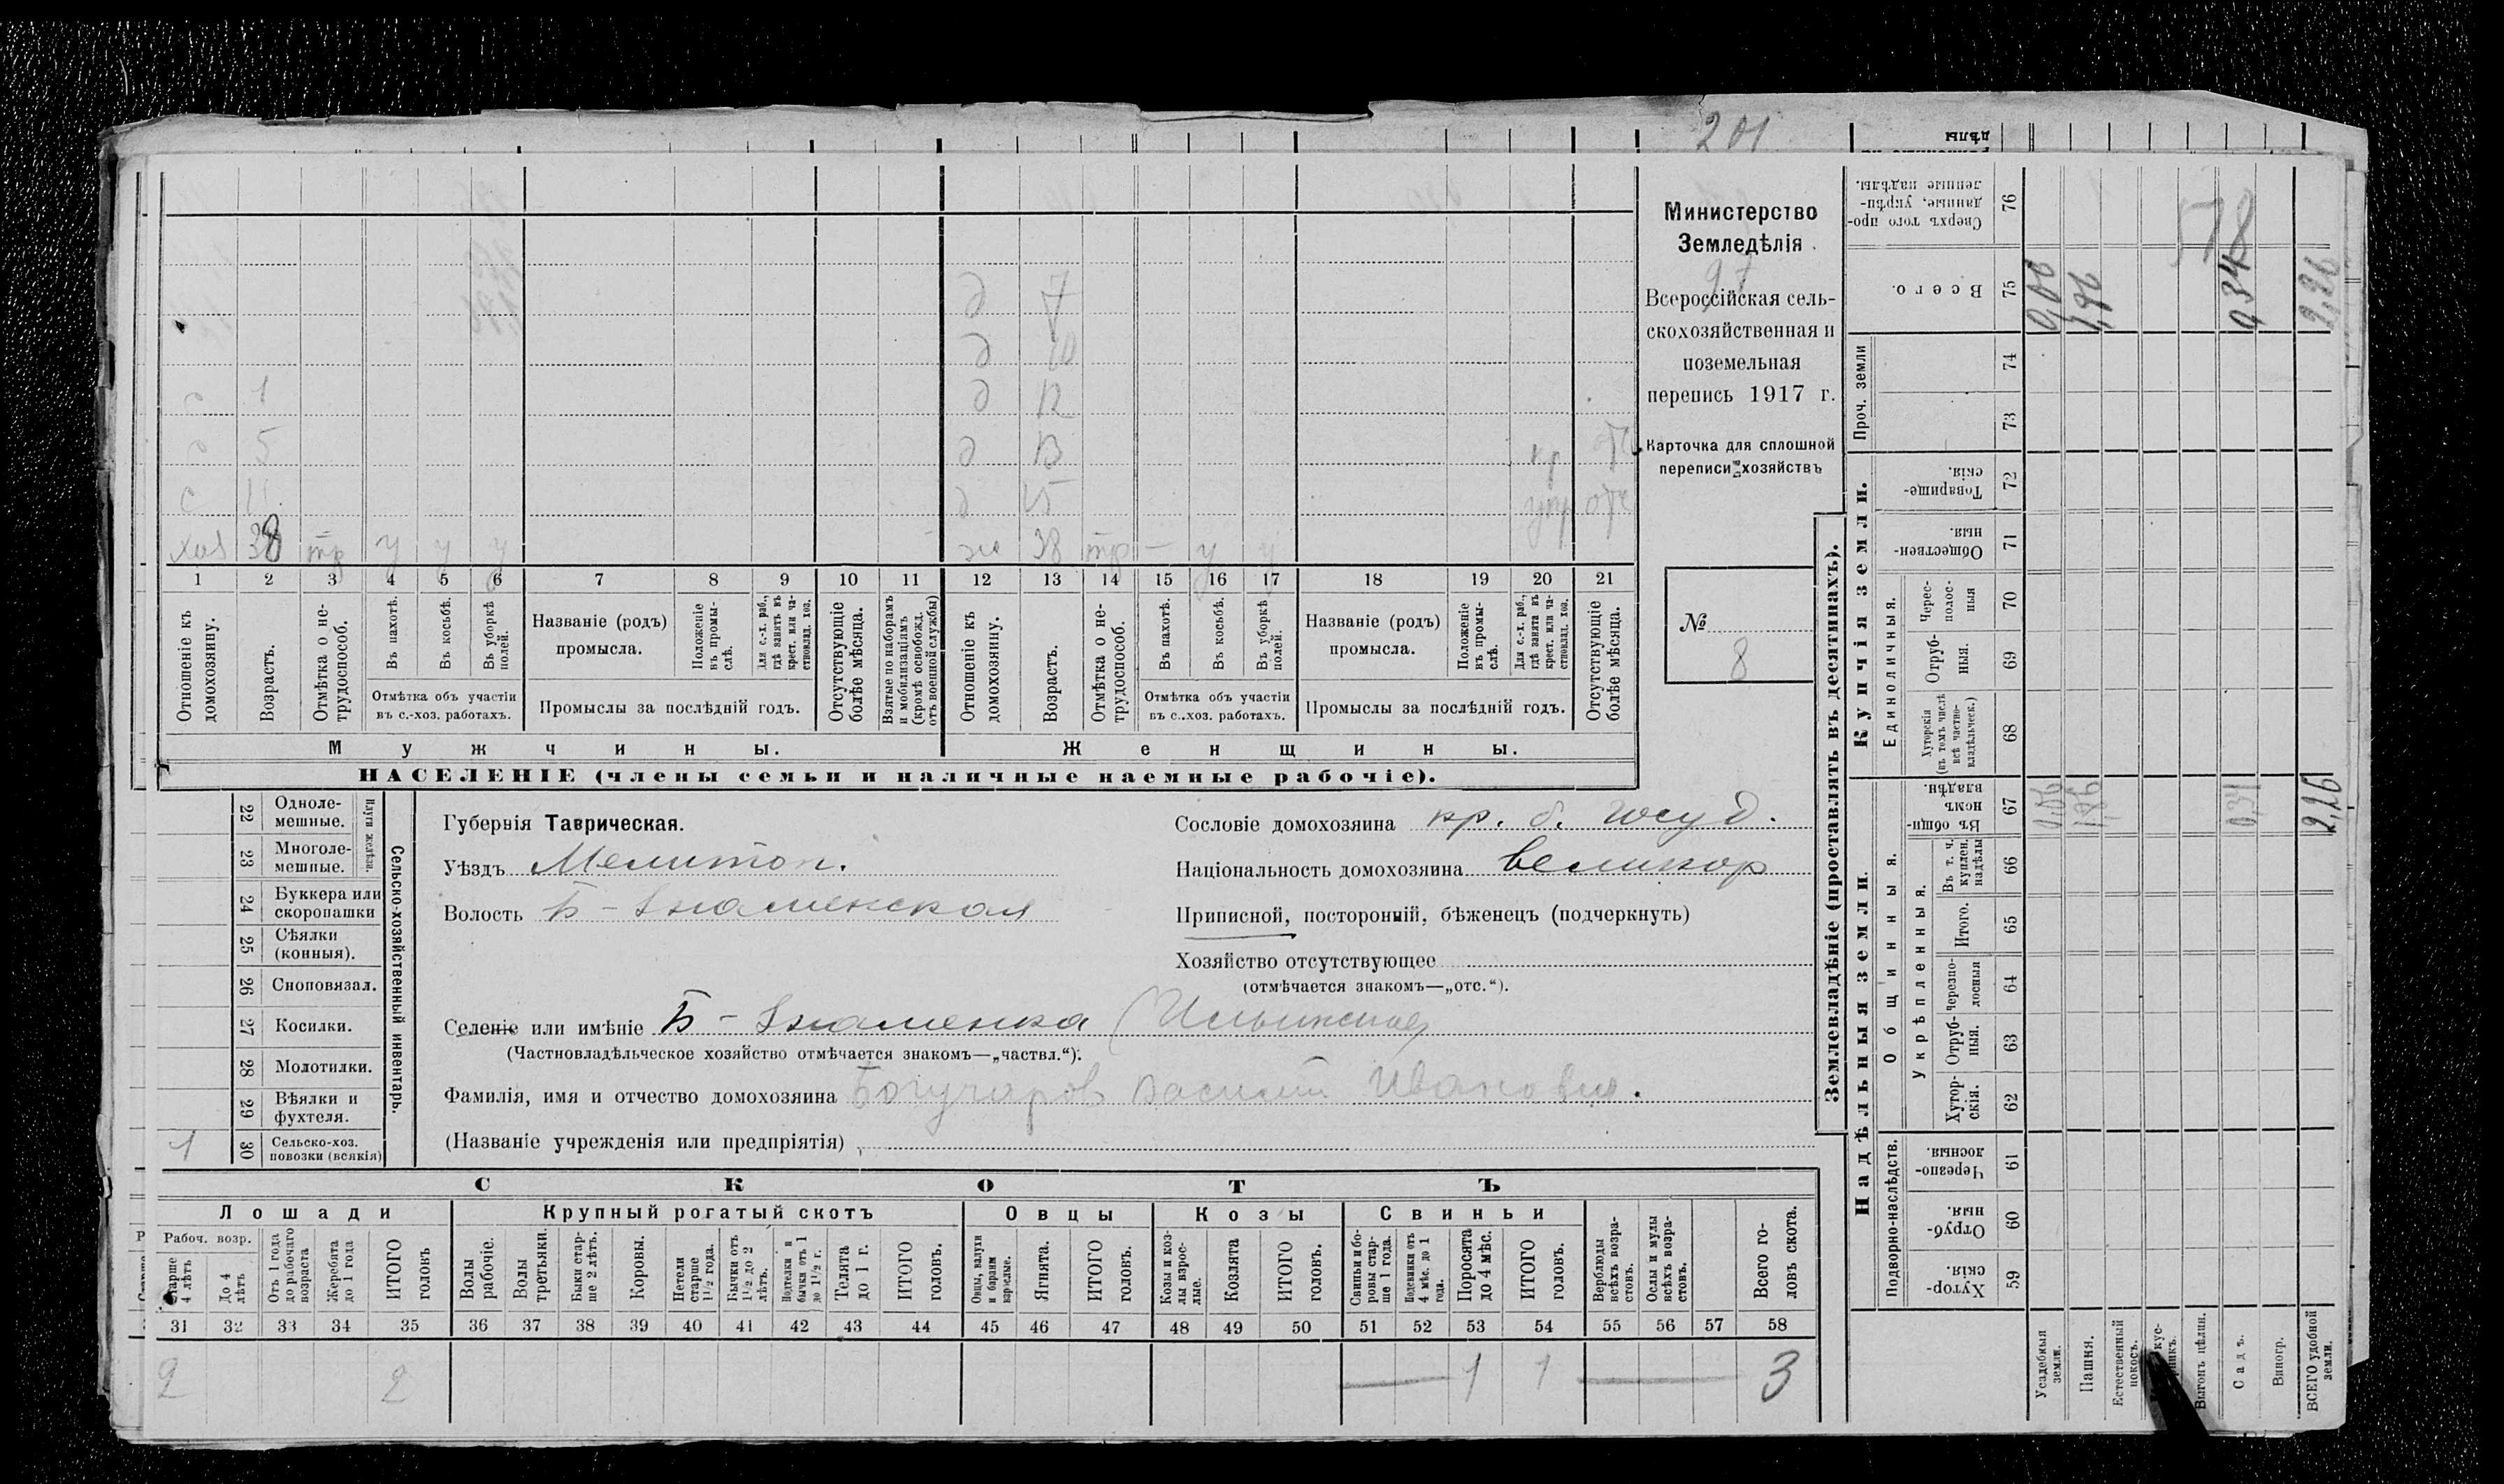 201
Министерство
Земледѣлія
97
Всероссійская сель-
скохозяйственная и
поземельная
перепись 1917 г.
Карточка для сплошной
переписи хозяйствъ
№
8
д 7
д 10
1 д 12
5 д 13 кр
с д 15 отс
хоз 38 тр у у у ж 38 тр — у у
1 2 3 4 5 6 7 8 9 10 11 12 13 14 15 16 17 18 19 20 21
Отношеніе къ домохозяину.
Возрастъ.
Отмѣтка о не-трудоспособ.
Въ пахотѣ.
Въ косьбѣ.
Въ уборкѣ полей.
Отмѣтка объ участіи
въ с.-хоз. работахъ.
Названіе (родъ)
промысла.
Положеніе въ промы-слѣ.
Для с.-х. раб., гдѣ занятъ въ крест. или ча-стновлад. хоз.
Промыслы за послѣдній годъ.
Отсутствующіе болѣе мѣсяца.
Взятые по наборамъ и мобилизаціямъ (кромѣ освобожд. отъ военной службы)
Отношеніе къ домохозяину.
Возрастъ.
Отмѣтка о не-трудоспособ.
Въ пахотѣ.
Въ косьбѣ.
Въ уборкѣ полей.
Отмѣтка объ участіи
въ с..хоз. работахъ.
Названіе (родъ)
промысла.
Положеніе въ промы-слѣ.
Для с.-х. раб., гдѣ занята въ крест. или ча-стновлад. хоз.
Промыслы за послѣдній годъ.
Отсутствующіе болѣе мѣсяца.
Мужчины.
Женщины.
НАСЕЛЕНІЕ (члены семьи и наличные наемные рабочіе).
Сельско-хозяйственный инвентарь.
22 Одноле-мешные.
23 Многоле-мешные.
24 Буккера или скоропашки
25 Сѣялки (конныя).
26 Сноповязал.
27 Косилки.
28 Молотилки.
29 Вѣялки и фухтеля.
1 30 Сельско-хоз. повозки (всякія)
Губернія Таврическая.
Уѣздъ Мелитоп.
Волость Б-Знаменская
Сословіе домохозяина кр. б. госуд.
Національность домохозяина великор
Приписной, посторонній, бѣженецъ (подчеркнуть)
Хозяйство отсутствующее
(отмѣчается знакомъ—„отс.“).
Селеніе или имѣніе Б-Знаменка
(Частновладѣльческое хозяйство отмѣчается знакомъ—„частвл.“).
Фамилія, имя и отчество домохозяина Богучаров Василий Иванович.
(Названіе учрежденія или предпріятія)
СКОТЪ
Лошади
Крупный рогатый скотъ
Овцы
Козы
Свиньи
Рабоч. возр.
Старше 4 лѣтъ
До 4 лѣтъ
Отъ 1 года до рабочаго возраста
Жеребята до 1 года
ИТОГО головъ
Волы рабочіе.
Волы третьяки.
Быки стар-ше 2 лѣтъ.
Коровы.
Нетели старше 1 1/2 года.
Бычки отъ 1 1/2 до 2 лѣтъ.
Подтелки и бычки отъ 1 до 1 1/2 г.
Телята до 1 г.
ИТОГО головъ.
Овцы, валухи и бараны взрослые.
Ягнята.
ИТОГО головъ.
Козы и коз-лы взрос-лые.
Козлята
ИТОГО головъ.
Свиньи и бо-ровы стар-ше 1 года.
Подсвинки отъ 4 мѣс. до 1 года.
Поросята до 4 мѣс.
ИТОГО головъ.
Верблюды всѣхъ возра-стовъ.
Ослы и мулы всѣхъ возра-стовъ.
Всего го-ловъ скота.
31 32 33 34 35 36 37 38 39 40 41 42 43 44 45 46 47 48 49 50 51 52 53 54 55 56 57 58
2 2 — 1 1 — 3
Землевладѣніе (проставлять въ десятинахъ).
Надѣльныя земли.
Купчія земли.
Проч. земли
Подворно-наслѣдств.
Общинныя.
Укрѣпленныя.
Единоличныя.
Хутор-скія. 59
Отруб-ныя. 60
Черезпо-лосныя. 61
Хутор-скія. 62
Отруб-ныя. 63
Черезпо-лосныя 64
Итого. 65
Въ т. ч. куплен. надѣлы 66
Въ общи-номъ владѣн. 67
Хуторскія (въ томъ числѣ всѣ частно-владѣльческ.) 68
Отруб-ныя. 69
Черес-полос-ныя 70
Обществен-ныя. 71
Товарище-скія. 72
73
74
Всего. 75
Сверхъ того про-данные, укрѣп-ленные надѣлы. 76
Усадебныя земли. 0,06
Пашня. 1,86
Естественный покосъ.
Выгонъ цѣлин.
Садъ. 0,34 0,34
Виногр.
ВСЕГО удобной земли. 2,26 2,26